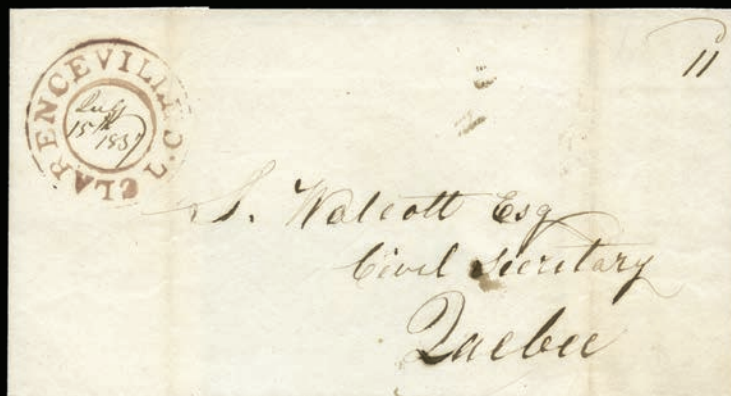 CLARENCEVILLE L.C.
July
15th
1837
11
S. Walcott Esq
Civil Secretary
Quebec